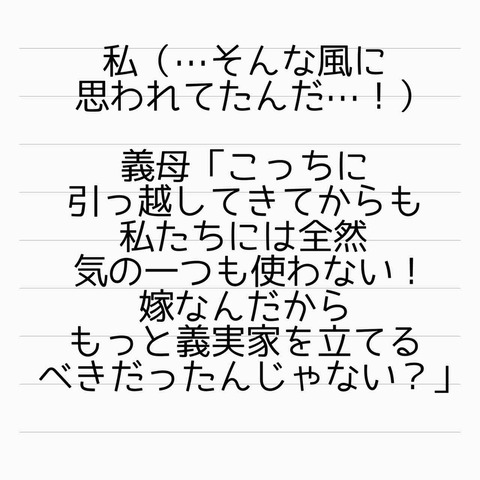 私（…そんな風に
思われてたんだ…！）
義母「こっちに
引っ越してきてからも
私たちには全然
気の一つも使わない！
嫁なんだから
もっと義実家を立てる
べきだったんじゃない？」